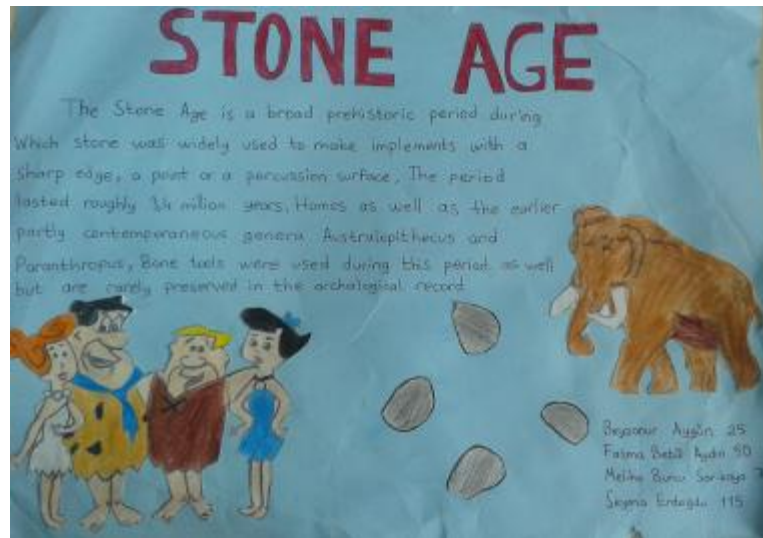 STONE AGE
The Stone Age is a broad prehistoric period during
Which stone was widely used to make implements with a
sharp edge, a point or a percussion surface, The period
lasted roughly 3,4 million years, Homes as well as the earlier
partly contemporaneous genera Australopithecus and
Paranthropus, Bone tools were used during this period as well
but are rarely preserved in the archalogical record
Aygün 25
Fatma Betül Aydın 50
Melike
115